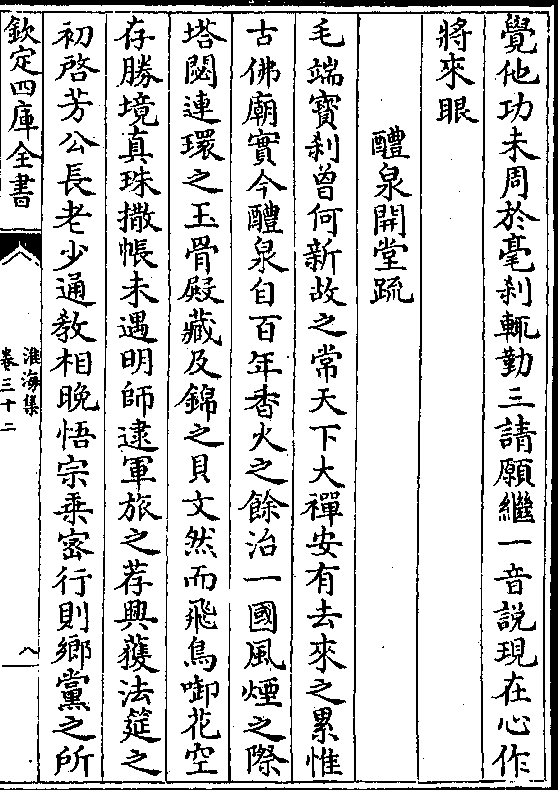 覺他功未周於毫刹輒勤三請願繼一音說現在心作
將來眼
醴泉開堂疏
毛端寳刹曽何新故之常天下大禪安有去來之累惟
古佛廟實今醴泉自百年香火之餘治一國風煙之際
塔閟連環之玉骨殿藏及錦之貝文然而飛鳥啣花空
存勝境真珠撒帳未遇明師逮軍旅之荐興蒦法筵之
初啓芳公長老少通教相晩悟宗乗宻行則鄉黨之所
欽定四庫全書
淮海集
卷三十二
八